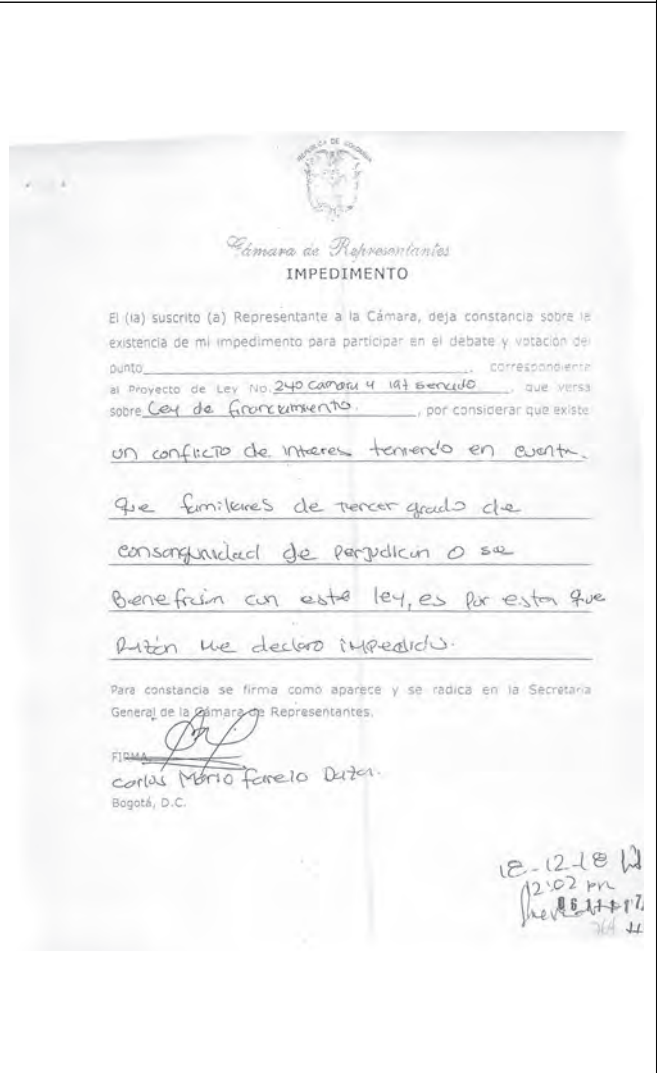 REPUBLICA DE COLOMBIA
Cámara de Representantes
IMPEDIMENTO
El (la) suscrito (a) Representante a la Cámara, deja constancia sobre la
existencia de mi impedimento para participar en el debate y votación del
punto____________, correspondiente
al Proyecto de Ley No. 240 Camara y 197 senado, que versa
sobre Ley de financiamiento., por considerar que existe
un conflicto de interes teniendo en cuenta
que familiares de tercer grado de
consanguinidad de perjudican o se
Benefician con este ley, es por esta que
Razón me declaro impedido.
Para constancia se firma como aparece y se radica en la Secretaría
General de la Cámara de Representantes.
FIRMA
Carlos Mario Farelo Daza.
Bogotá, D.C.
18-12-18
12:02 pm